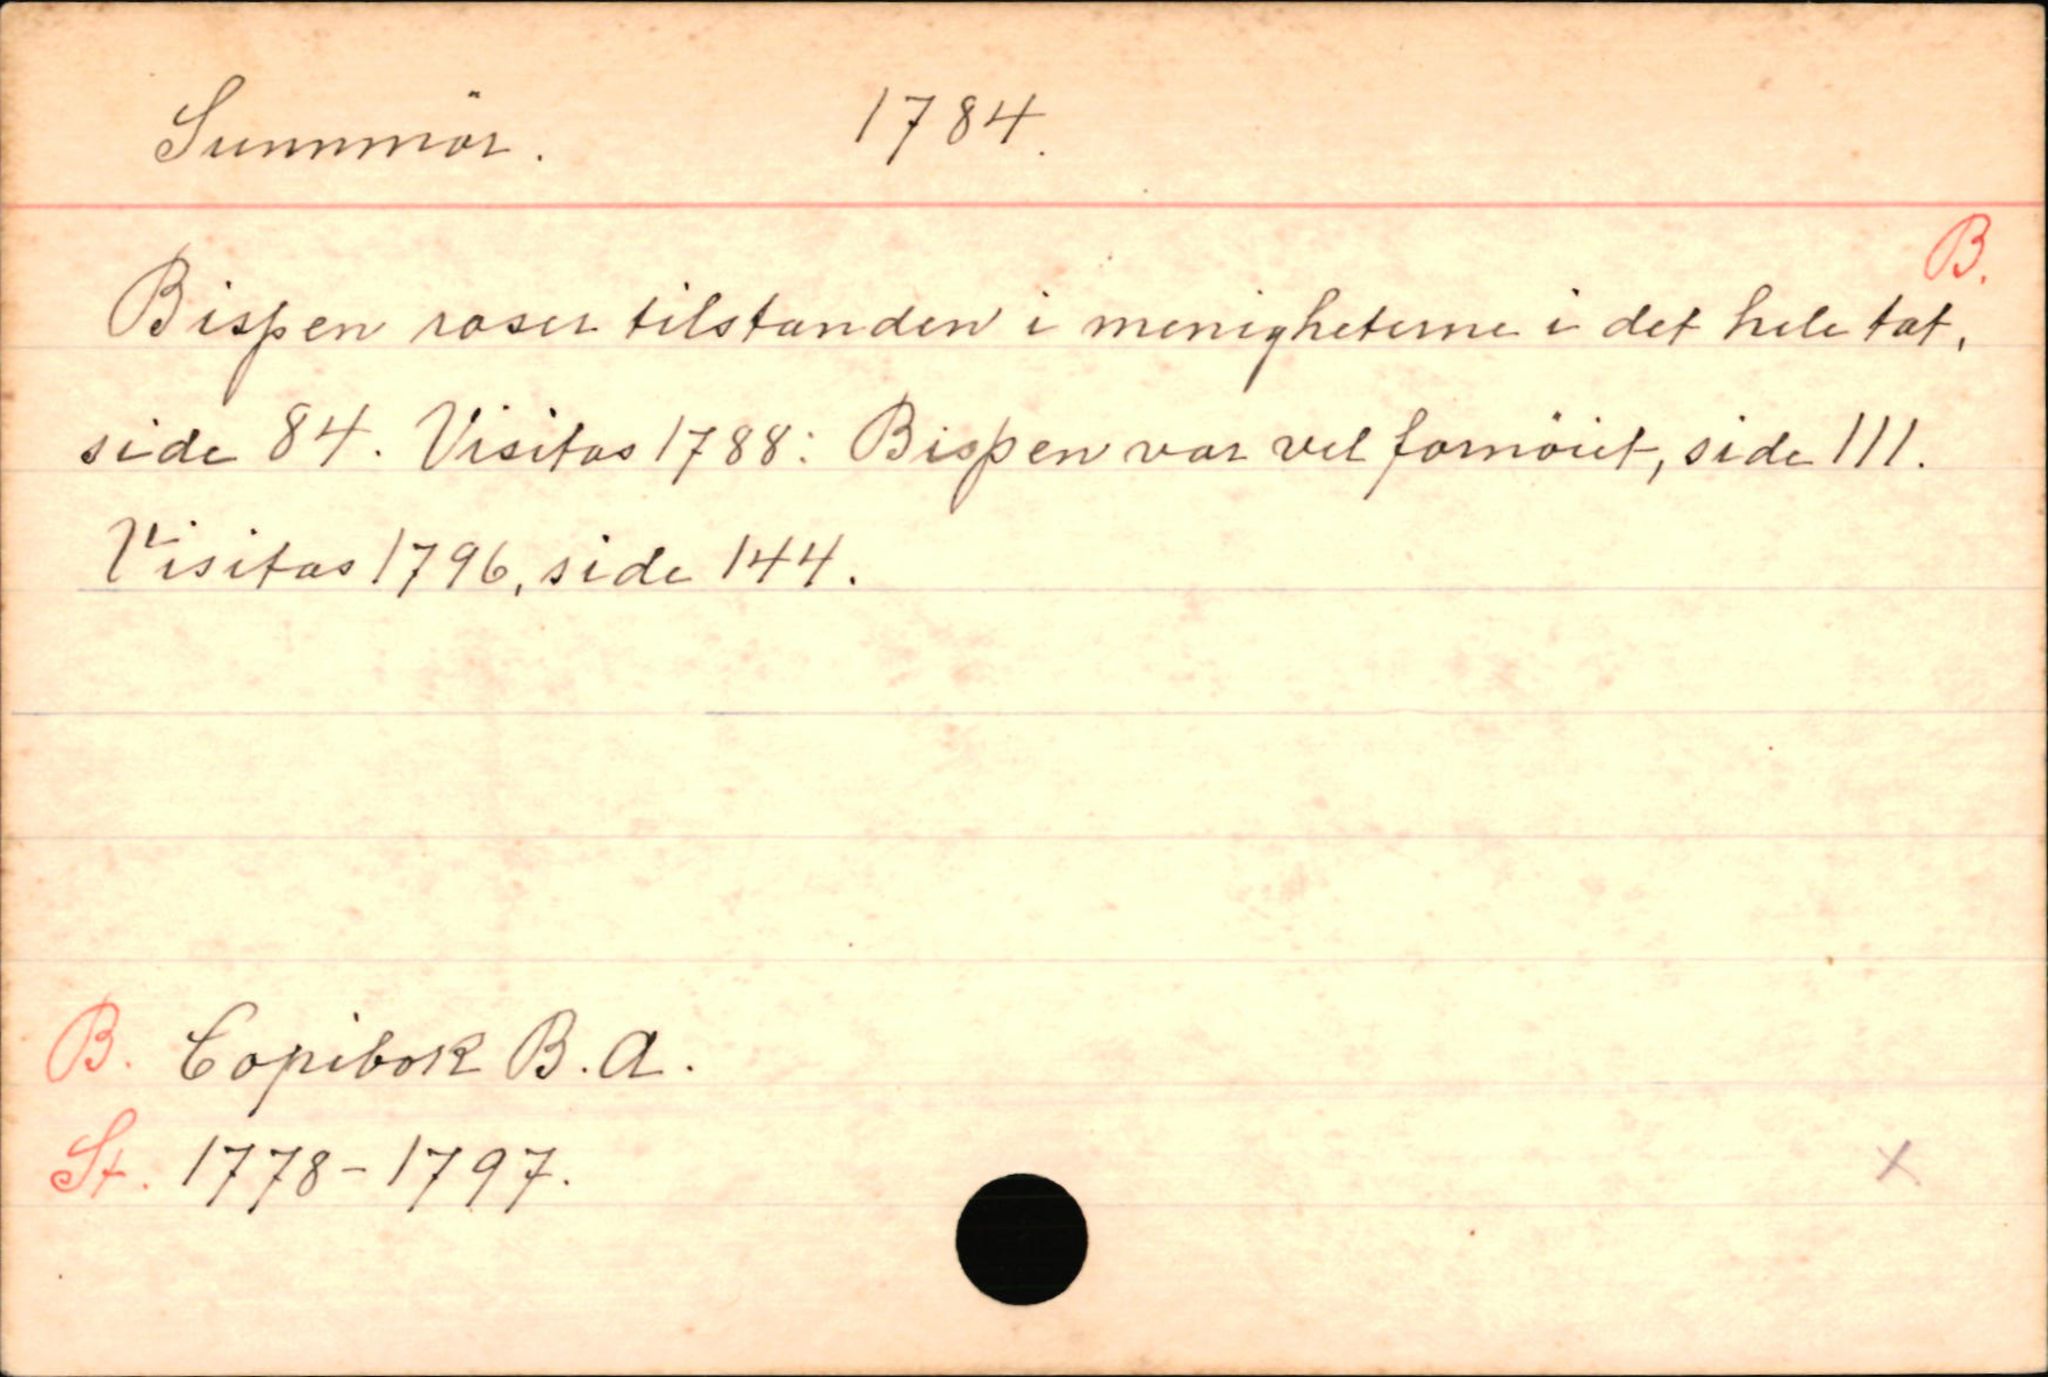 Sunnmör. 1784.
B.
Bispen roser tilstanden i menigheterne i det hele tat,
side 84. Visitas 1788: Bispen var vel fornöiet, side 111.
Visitas 1796, side 144.
B. Copibok B.A.
St. 1778-1797.
x